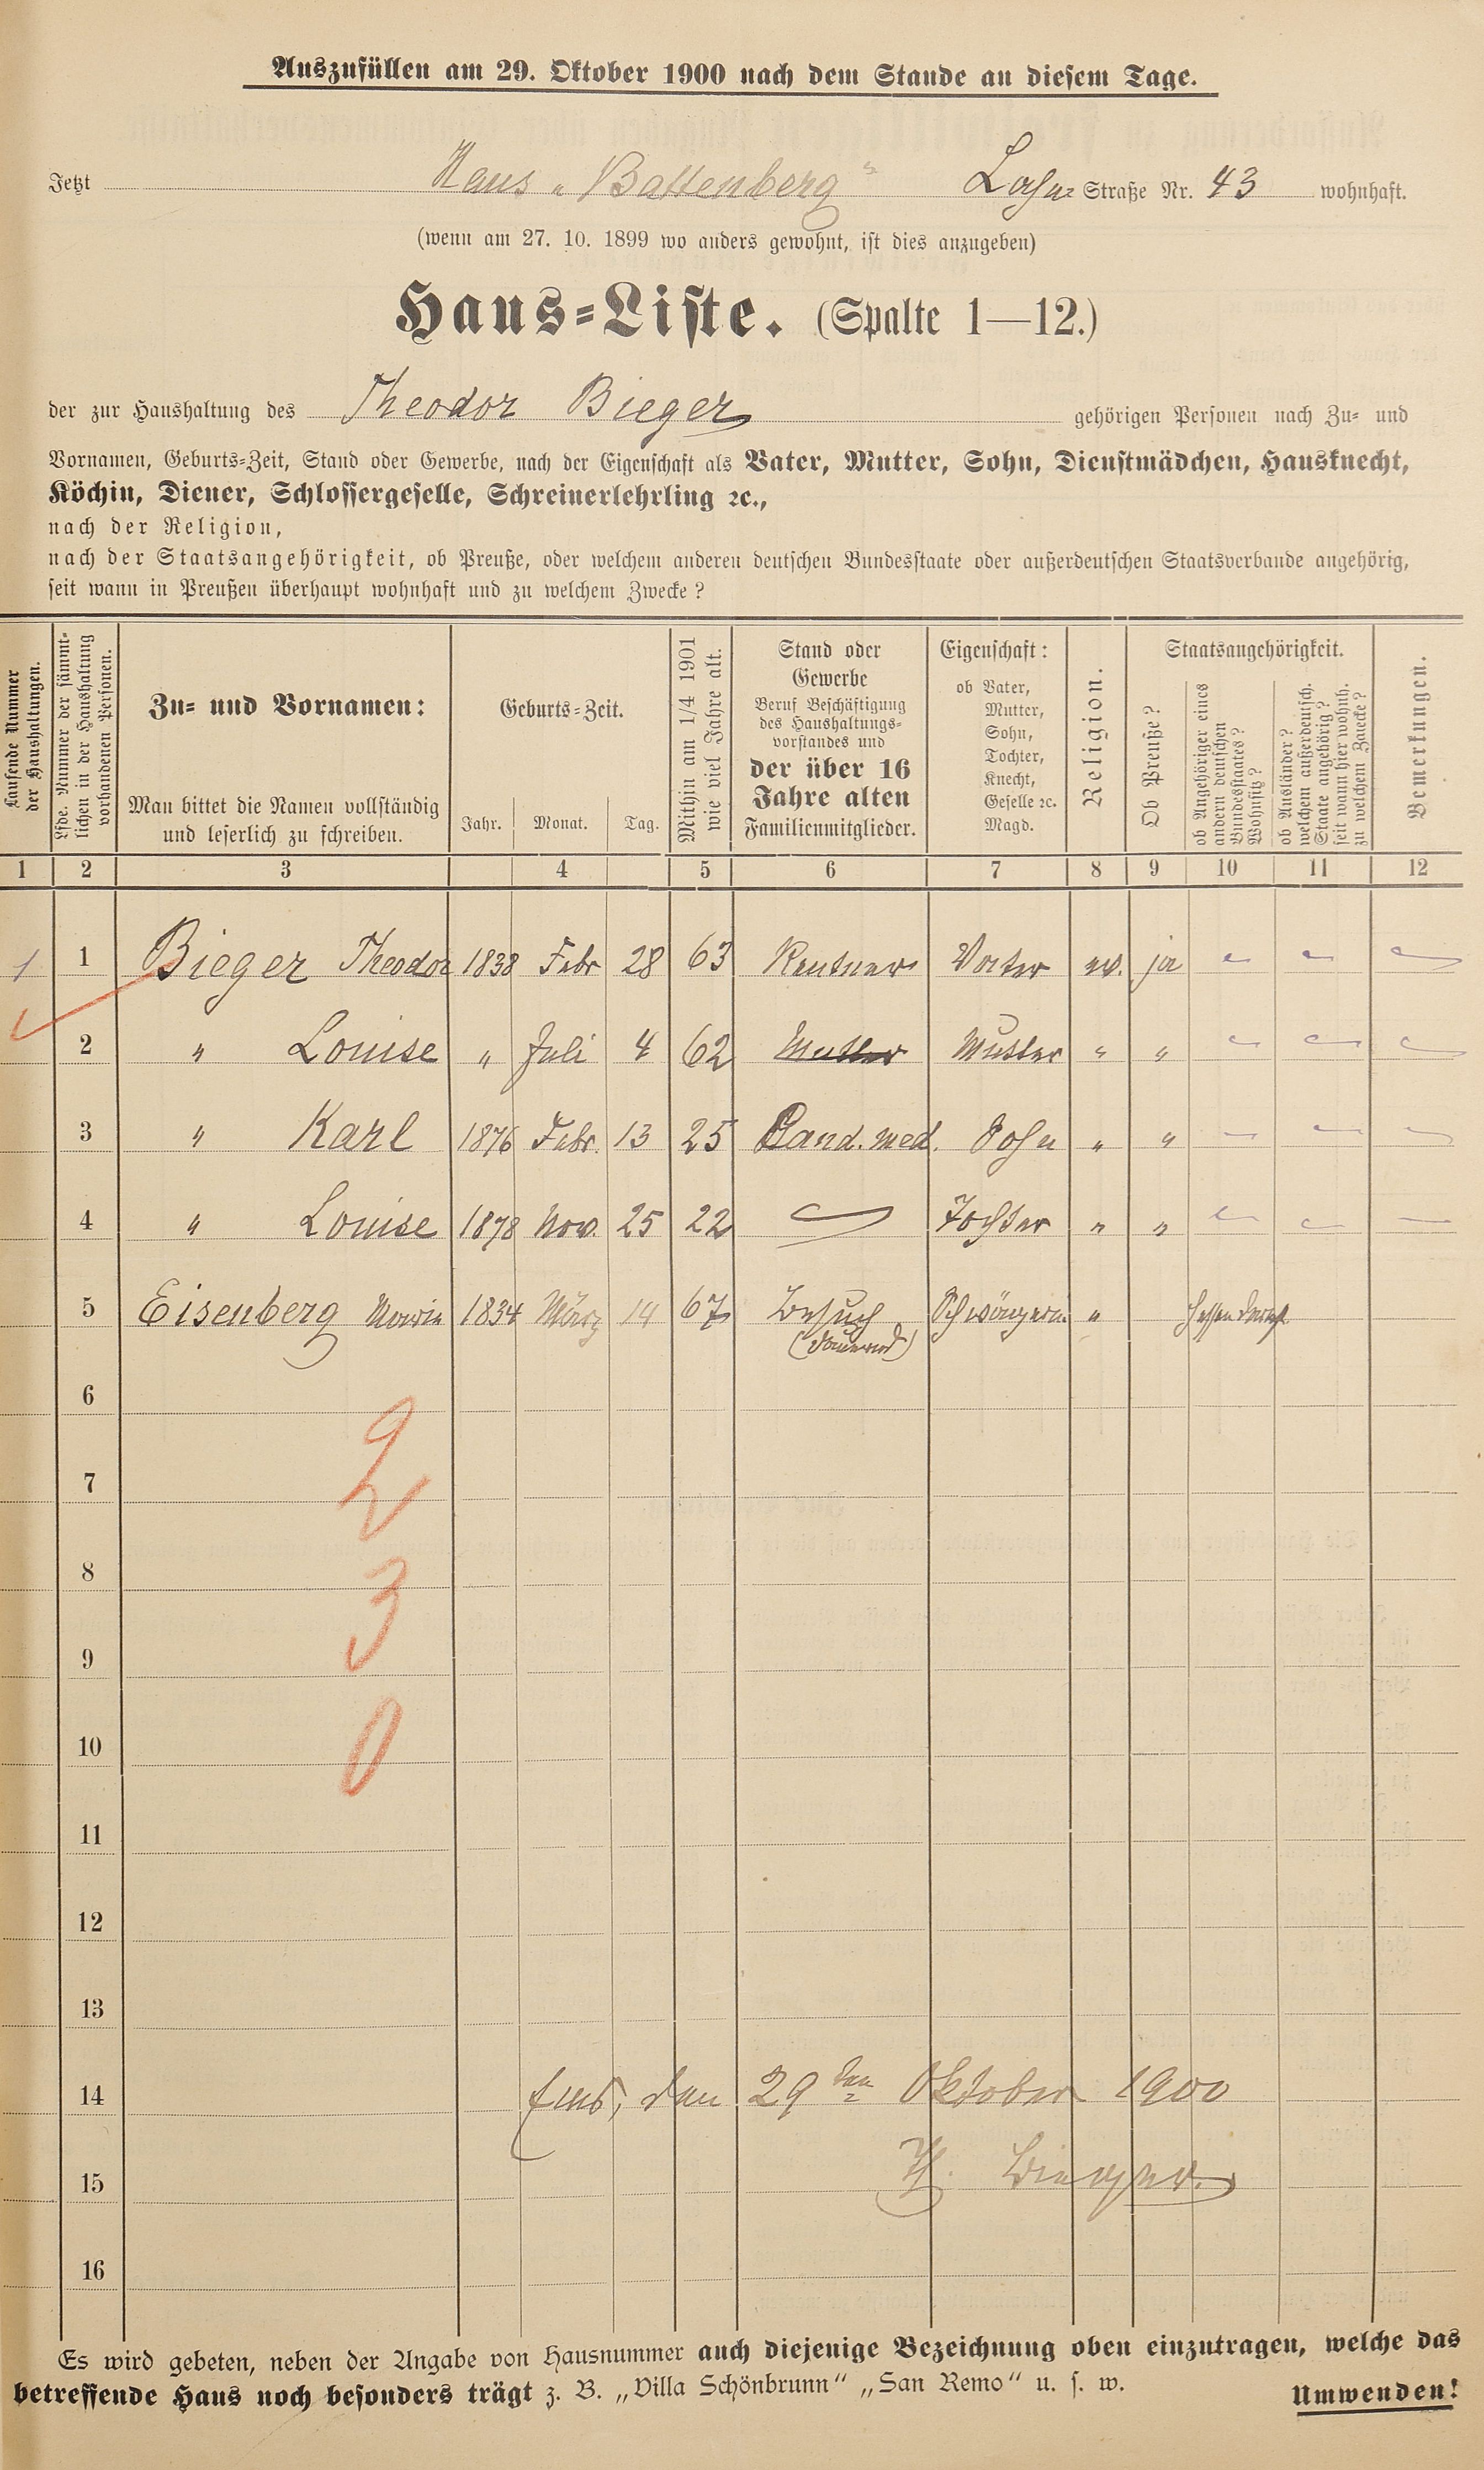 Auszufüllen am 29. Oktober 1900 nach dem Stande an diesem Tage.
Jetzt Haus „Battenberg“ Lahn Straße Nr. 43 wohnhaft.
(wenn am 27. 10. 1899 wo anders gewohnt, ist dies anzugeben)
Haus-Liste. (Spalte 1—12.)
der zur Haushaltung des Theodor Bieger gehörigen Personen nach Zu- und
Vornamen, Geburts-Zeit, Stand oder Gewerbe, nach der Eigenschaft als Vater, Mutter, Sohn, Dienstmädchen, Hausknecht,
Köchin, Diener, Schlossergeselle, Schreinerlehrling ꝛc.,
nach der Religion,
nach der Staatsangehörigkeit, ob Preuße, oder welchem anderen deutschen Bundesstaate oder außerdeutschen Staatsverbande angehörig,
seit wann in Preußen überhaupt wohnhaft und zu welchem Zwecke?
Laufende Nummer
der Haushaltungen.
Lfde. Nummer der sämmt-
lichen in der Haushaltung
vorhandenen Personen.
Zu- und Vornamen:
Man bittet die Namen vollständig
und leserlich zu schreiben.
Geburts-Zeit.
Jahr. Monat. Tag.
Mithin am 1/4 1901
wie viel Jahre alt.
Stand oder
Gewerbe
Beruf Beschäftigung
des Haushaltungs-
vorstandes und
der über 16
Jahre alten
Familienmitglieder.
Eigenschaft:
ob Vater,
Mutter,
Sohn,
Tochter,
Knecht,
Geselle ꝛc.
Magd.
Religion.
Staatsangehörigkeit.
Ob Preuße?
ob Angehöriger eines
andern deutschen
Bundesstaates?
Wohnsitz?
ob Ausländer?
welchem außerdeutsch.
Staate angehörig?
seit wann hier wohnh.
zu welchem Zwecke?
Bemerkungen.
1 2 3 4 5 6 7 8 9 10 11 12
1 1 Bieger Theodor 1838 Febr 28 63 Rentner Vater ev. ja
2 " Louise " Juli 4 62 Mutter Mutter " "
3 " Karl 1876 Febr. 13 25 Cand. med. Sohn " "
4 " Louise 1878 Nov. 25 22 Tochter " "
5 Eisenberg Marie 1834 März 14 67 Besuch Schwägerin " Hessen Darmst
(dauernd)
6
2
7
8
3
9
10
0
11
12
13
14 Ems, den 29ten Oktober 1900
15 Th. Bieger.
16
Es wird gebeten, neben der Angabe von Hausnummer auch diejenige Bezeichnung oben einzutragen, welche das
betreffende Haus noch besonders trägt z. B. „Villa Schönbrunn“ „San Remo“ u. s. w.
Umwenden!